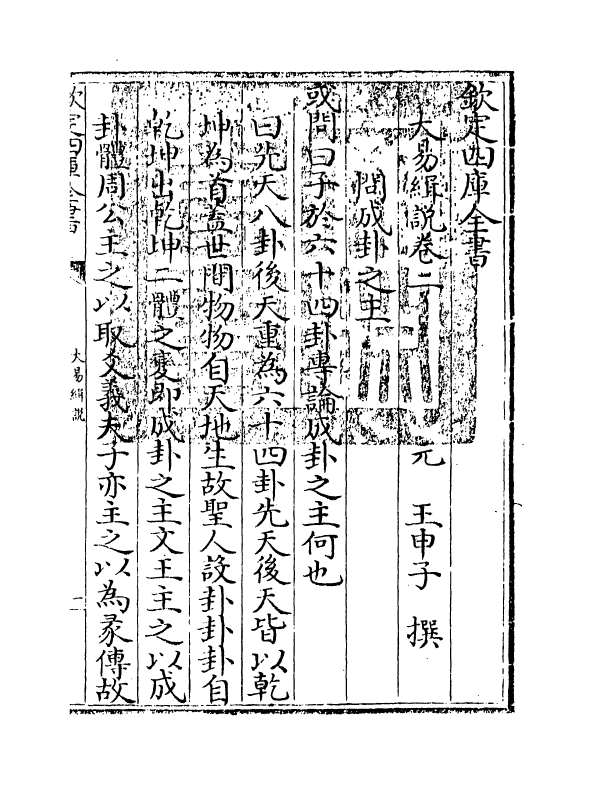 欽定四庫全書
大易緝説卷二
元 王申子 撰
問成卦之主
或問曰子於六十四卦專論成卦之主何也
曰先天八卦後天重為六十四卦先天後天皆以乾
坤為首蓋世間物物自天地生故聖人設卦卦卦自
乾坤出乾坤二體之變即成卦之主文王主之以成
卦體周公主之以取爻義夫子亦主之以為彖傳故
欽定四庫全書
大易緝説